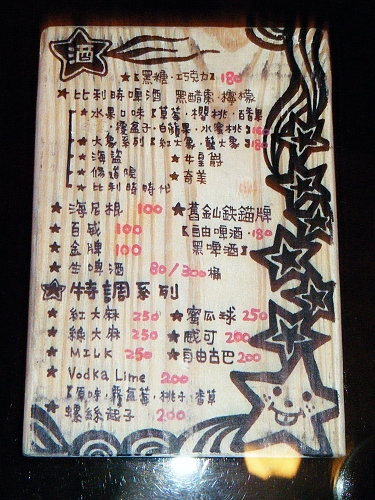 酒
★【黑糖·巧克力】180
★比利時啤酒 黑醋栗·檸檬
★水果口味【草莓·櫻桃·百香果
·覆盆子·白蘋果·水蜜桃】160
★大象系列【紅大象·藍大象】180
★海盜 ★女皇爵
★修道院 ★奇美
★比利時時代
★海尼根 100 ★舊金山鉄錨牌
★百威 100 【自由啤酒·180
★金牌 100 黑啤酒】
★生啤酒 80/300桶
★特調系列
★紅大麻 250 ★蜜瓜球 250
★綠大麻 250 ★威可 200
★MILK 250 ★自由古巴 200
★Vodka Lime 200
【原味·蘿蔔莓·桃子·香草
★螺絲起子 200